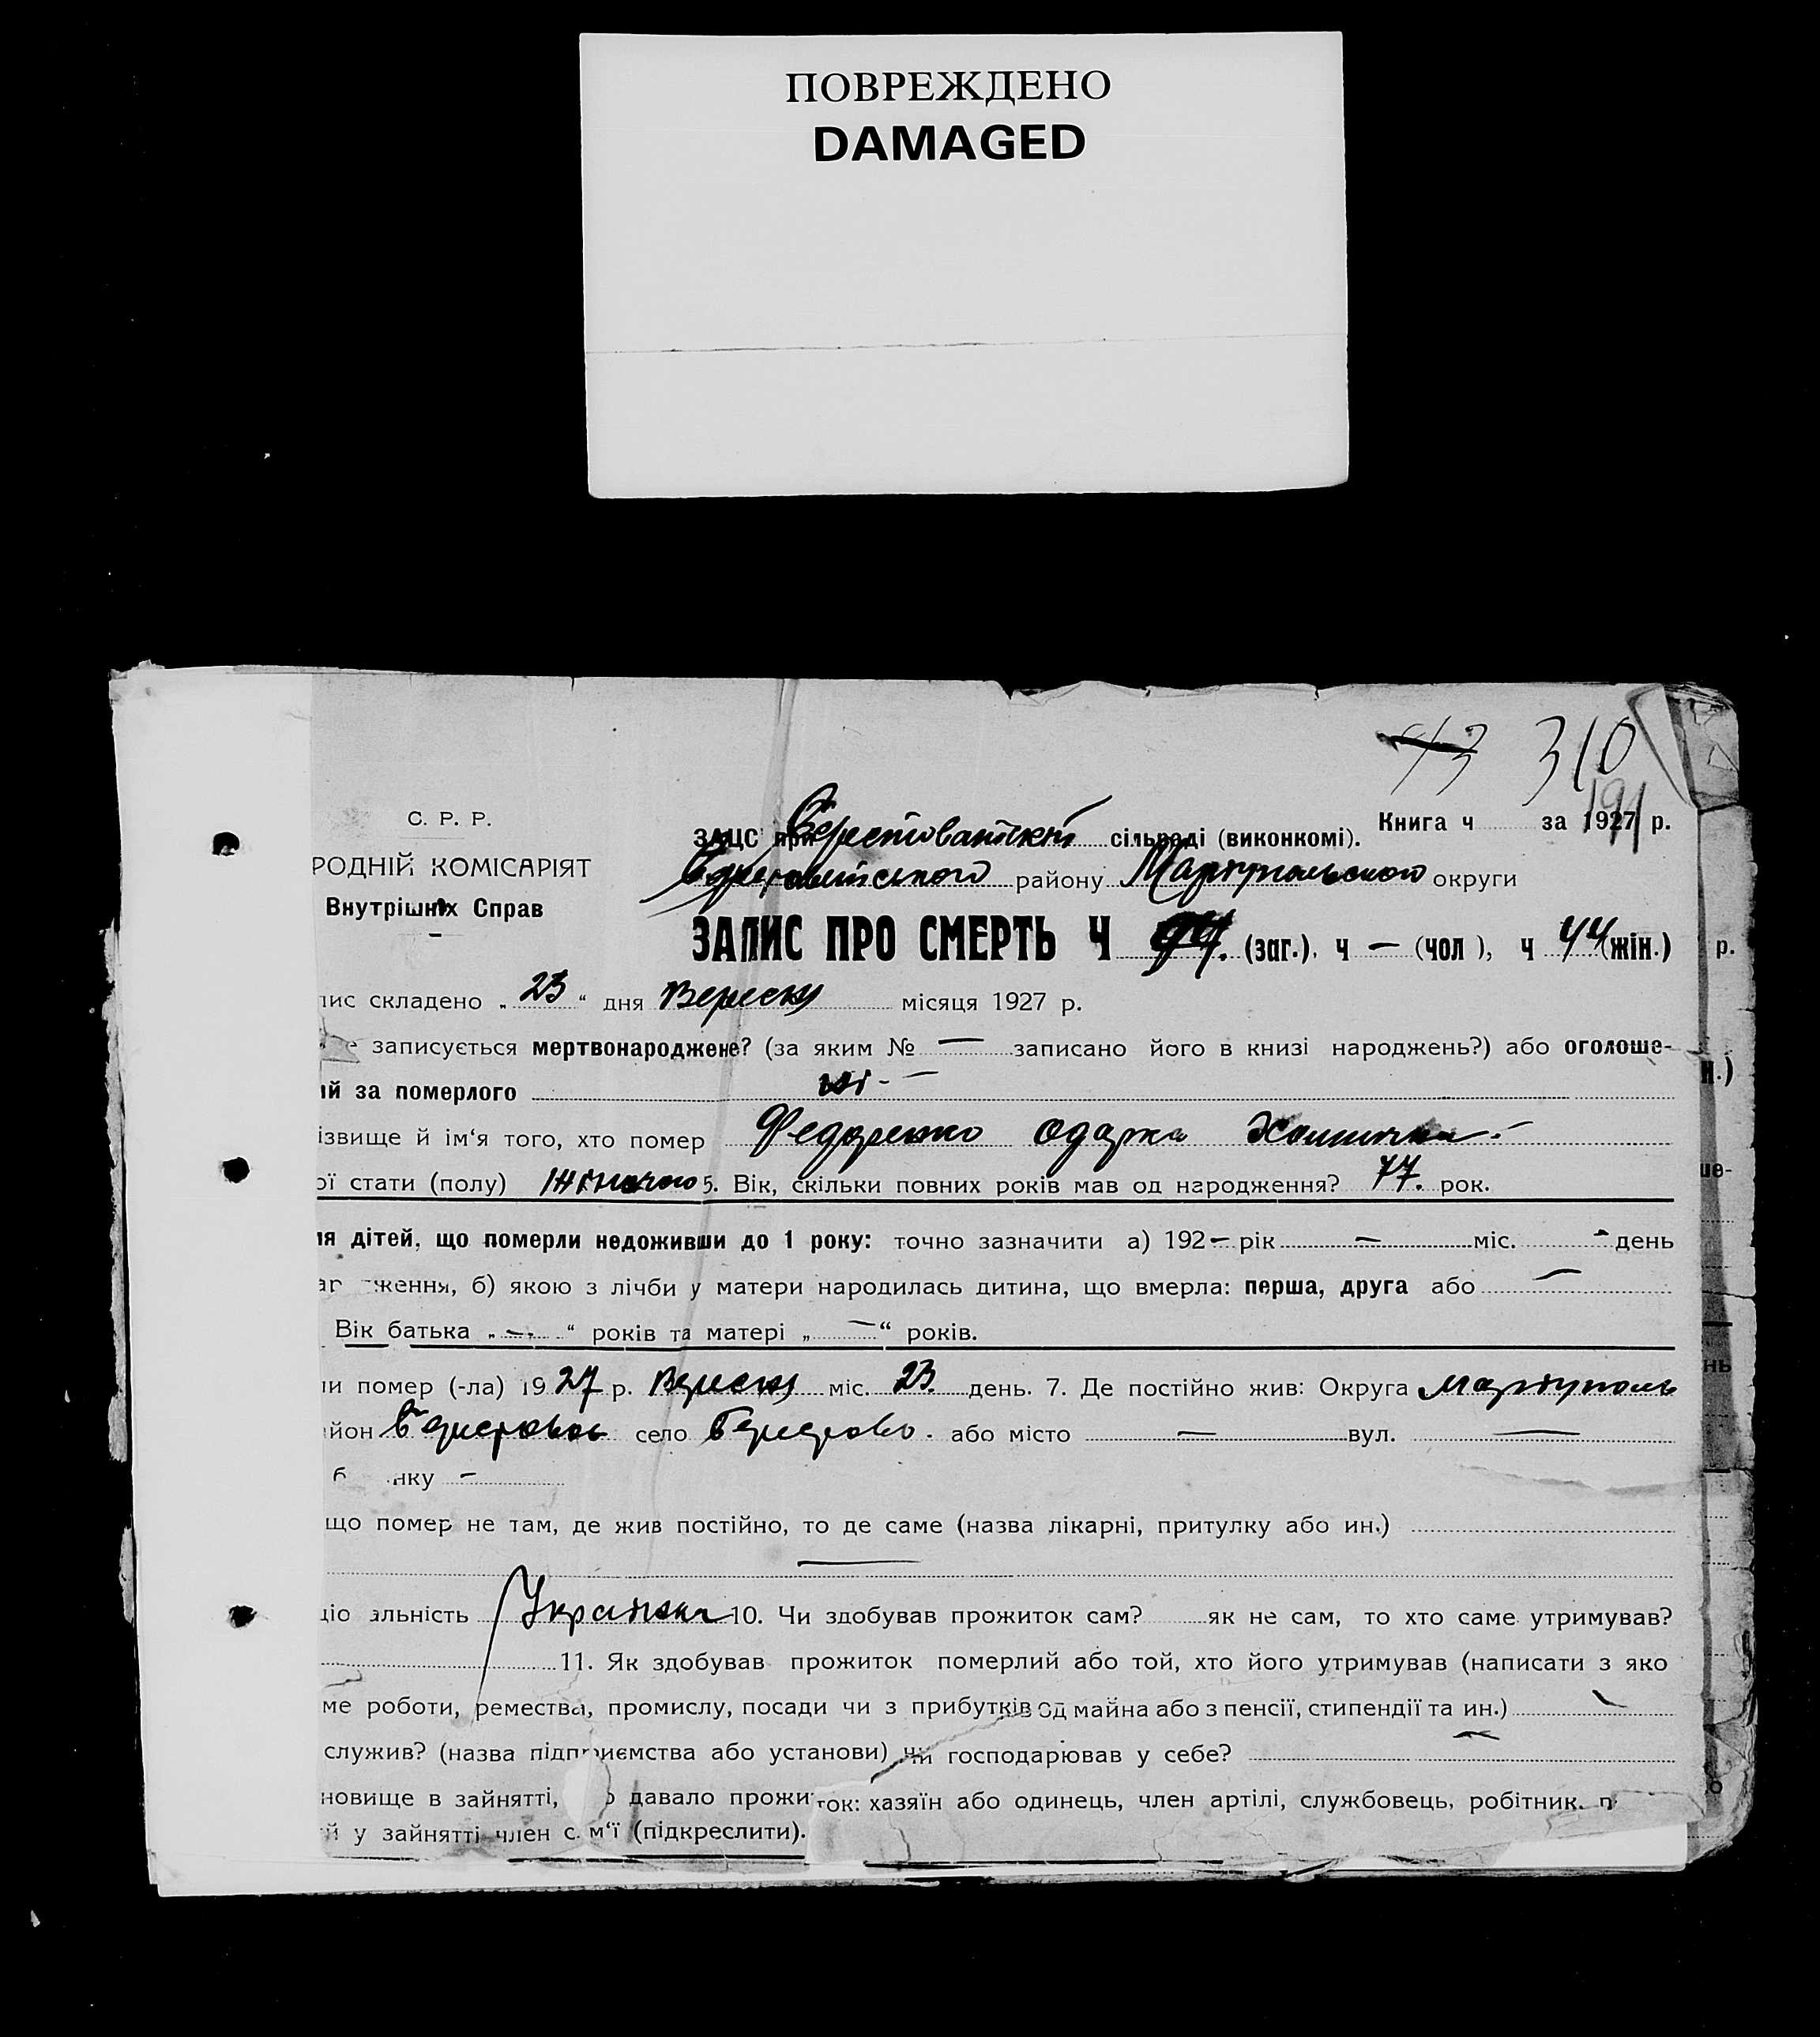 ПОВРЕЖДЕНО
DAMAGED
43 310
191
С. Р. Р.
РОДНІЙ КОМІСАРІЯТ
Внутрішніх Справ
ЗАЦС при сільраді (виконкомі). Книга ч за 1927 р.
району Маріупольського округи
ЗАПИС ПРО СМЕРТЬ Ч 99. (заг.), ч — (чол ), ч 44 (жін.)
ис складено „ 23 “ дня Вересня місяця 1927 р.
е записується мертвонароджене? (за яким № — записано його в книзі народжень?) або оголоше-
ий за померлого ні - —
ізвище й ім‘я того, хто помер Федоренко Одарка
ої стати (полу) Жіночого 5. Вік, скільки повних років мав од народження? 77. рок.
ля дітей, що померли недоживши до 1 року: точно зазначити а) 192 — рік — міс. - день
ження, б) якою з лічби у матери народилась дитина, що вмерла: перша, друга або —
Вік батька „ — “ років та матері „ — “ років.
ли помер (-ла) 1927 р. Вересня міс. 23. день. 7. Де постійно жив: Округа Маріуполь
йон село або місто — вул. —
нку —
що помер не там, де жив постійно, то де саме (назва лікарні, притулку або ин.)
—
ціо альність Українка 10. Чи здобував прожиток сам? як не сам, то хто саме утримував?
11. Як здобував прожиток померлий або той, хто його утримував (написати з яко
ме роботи, ремества, промислу, посади чи з прибутків од майна або з пенсії, стипендії та ин.)
служив? (назва підприємства або установи) чи господарював у себе? —
новище в зайнятті, давало прожиток: хазяїн або одинець, член артілі, службовець, робітник, п
й у зайнятті член сім‘ї (підкреслити).